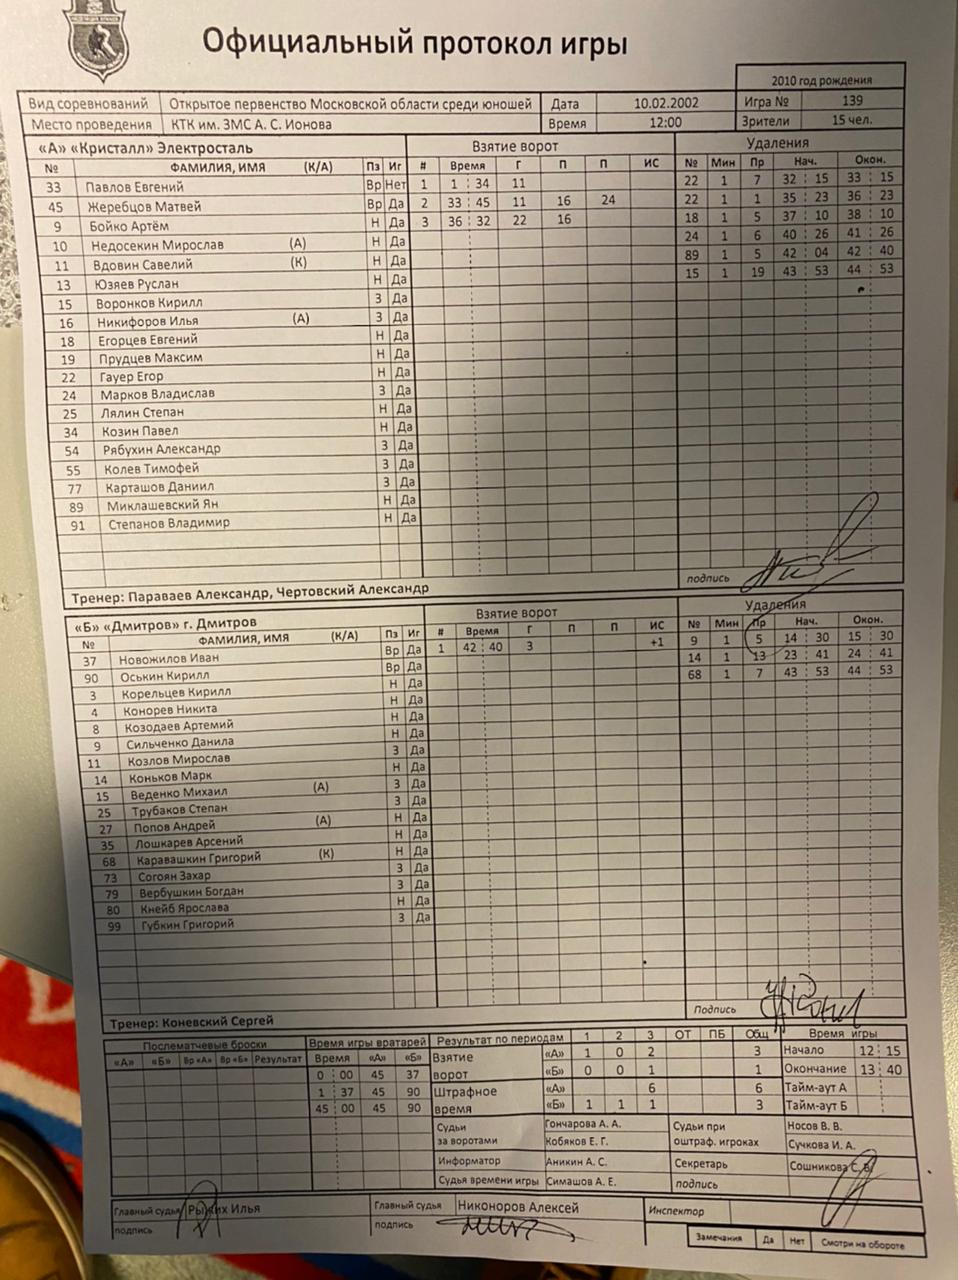 Официальный протокол игры
2010 год рождения
Вид соревнований Открытое первенство Московской области среди юношей Дата 10.02.2002 Игра № 139
Место проведения КТК им. ЗМС А. С. Ионова Время 12:00 Зрители 15 чел.
«А» «Кристалл» Электросталь Взятие ворот Удаления
№ ФАМИЛИЯ, ИМЯ (К/А) Пз Иг # Время Г П П ИС № Мин Пр Нач. Окон.
33 Павлов Евгений Вр Нет 1 1 : 34 11 22 1 7 32 : 15 33 : 15
45 Жеребцов Матвей Вр Да 2 33 : 45 11 16 24 22 1 1 35 : 23 36 : 23
9 Бойко Артём Н Да 3 36 : 32 22 16 18 1 5 37 : 10 38 : 10
10 Недосекин Мирослав (А) Н Да 24 1 6 40 : 26 41 : 26
11 Вдовин Савелий (К) Н Да 89 1 5 42 : 04 42 : 40
13 Юзяев Руслан Н Да 15 1 19 43 : 53 44 : 53
15 Воронков Кирилл З Да
16 Никифоров Илья (А) З Да
18 Егорцев Евгений Н Да
19 Прудцев Максим Н Да
22 Гауер Егор Н Да
24 Марков Владислав З Да
25 Лялин Степан Н Да
34 Козин Павел Н Да
54 Рябухин Александр З Да
55 Колев Тимофей З Да
77 Карташов Даниил З Да
89 Миклашевский Ян Н Да
91 Степанов Владимир Н Да
подпись
Тренер: Параваев Александр, Чертовский Александр
«Б» «Дмитров» г. Дмитров Взятие ворот Удаления
№ ФАМИЛИЯ, ИМЯ (К/А) Пз Иг # Время Г П П ИС № Мин Пр Нач. Окон.
37 Новожилов Иван Вр Да 1 42 : 40 3 +1 9 1 5 14 : 30 15 : 30
90 Оськин Кирилл Вр Да 14 1 13 23 : 41 24 : 41
3 Корельцев Кирилл Н Да 68 1 7 43 : 53 44 : 53
4 Конорев Никита Н Да
8 Козодаев Артемий Н Да
9 Сильченко Данила Н Да
11 Козлов Мирослав З Да
14 Коньков Марк Н Да
15 Веденко Михаил (А) З Да
25 Трубаков Степан З Да
27 Попов Андрей (А) Н Да
35 Лошкарев Арсений Н Да
68 Каравашкин Григорий (К) Н Да
73 Согоян Захар З Да
79 Вербушкин Богдан З Да
80 Кнейб Ярослава Н Да
99 Губкин Григорий З Да
Подпись
Тренер: Коневский Сергей
Послематчевые броски Время игры вратарей Результат по периодам 1 2 3 ОТ ПБ Общ Время игры
«А» «Б» Вр «А» Вр «Б» Результат Время «А» «Б» Взятие ворот «А» 1 0 2 3 Начало 12 : 15
0 : 00 45 37 «Б» 0 0 1 1 Окончание 13 : 40
1 : 37 45 90 Штрафное время «А» 6 6 Тайм-аут А
45 : 00 45 90 «Б» 1 1 1 3 Тайм-аут Б
Судьи за воротами Гончарова А. А. Судьи при оштраф. игроках Носов В. В.
Кобяков Е. Г. Сучкова И. А.
Информатор Аникин А. С. Секретарь Сошникова С. В.
Судья времени игры Симашов А. Е. подпись
Главный судья Рыжих Илья Главный судья Никоноров Алексей Инспектор
подпись подпись
Замечания Да Нет Смотри на обороте